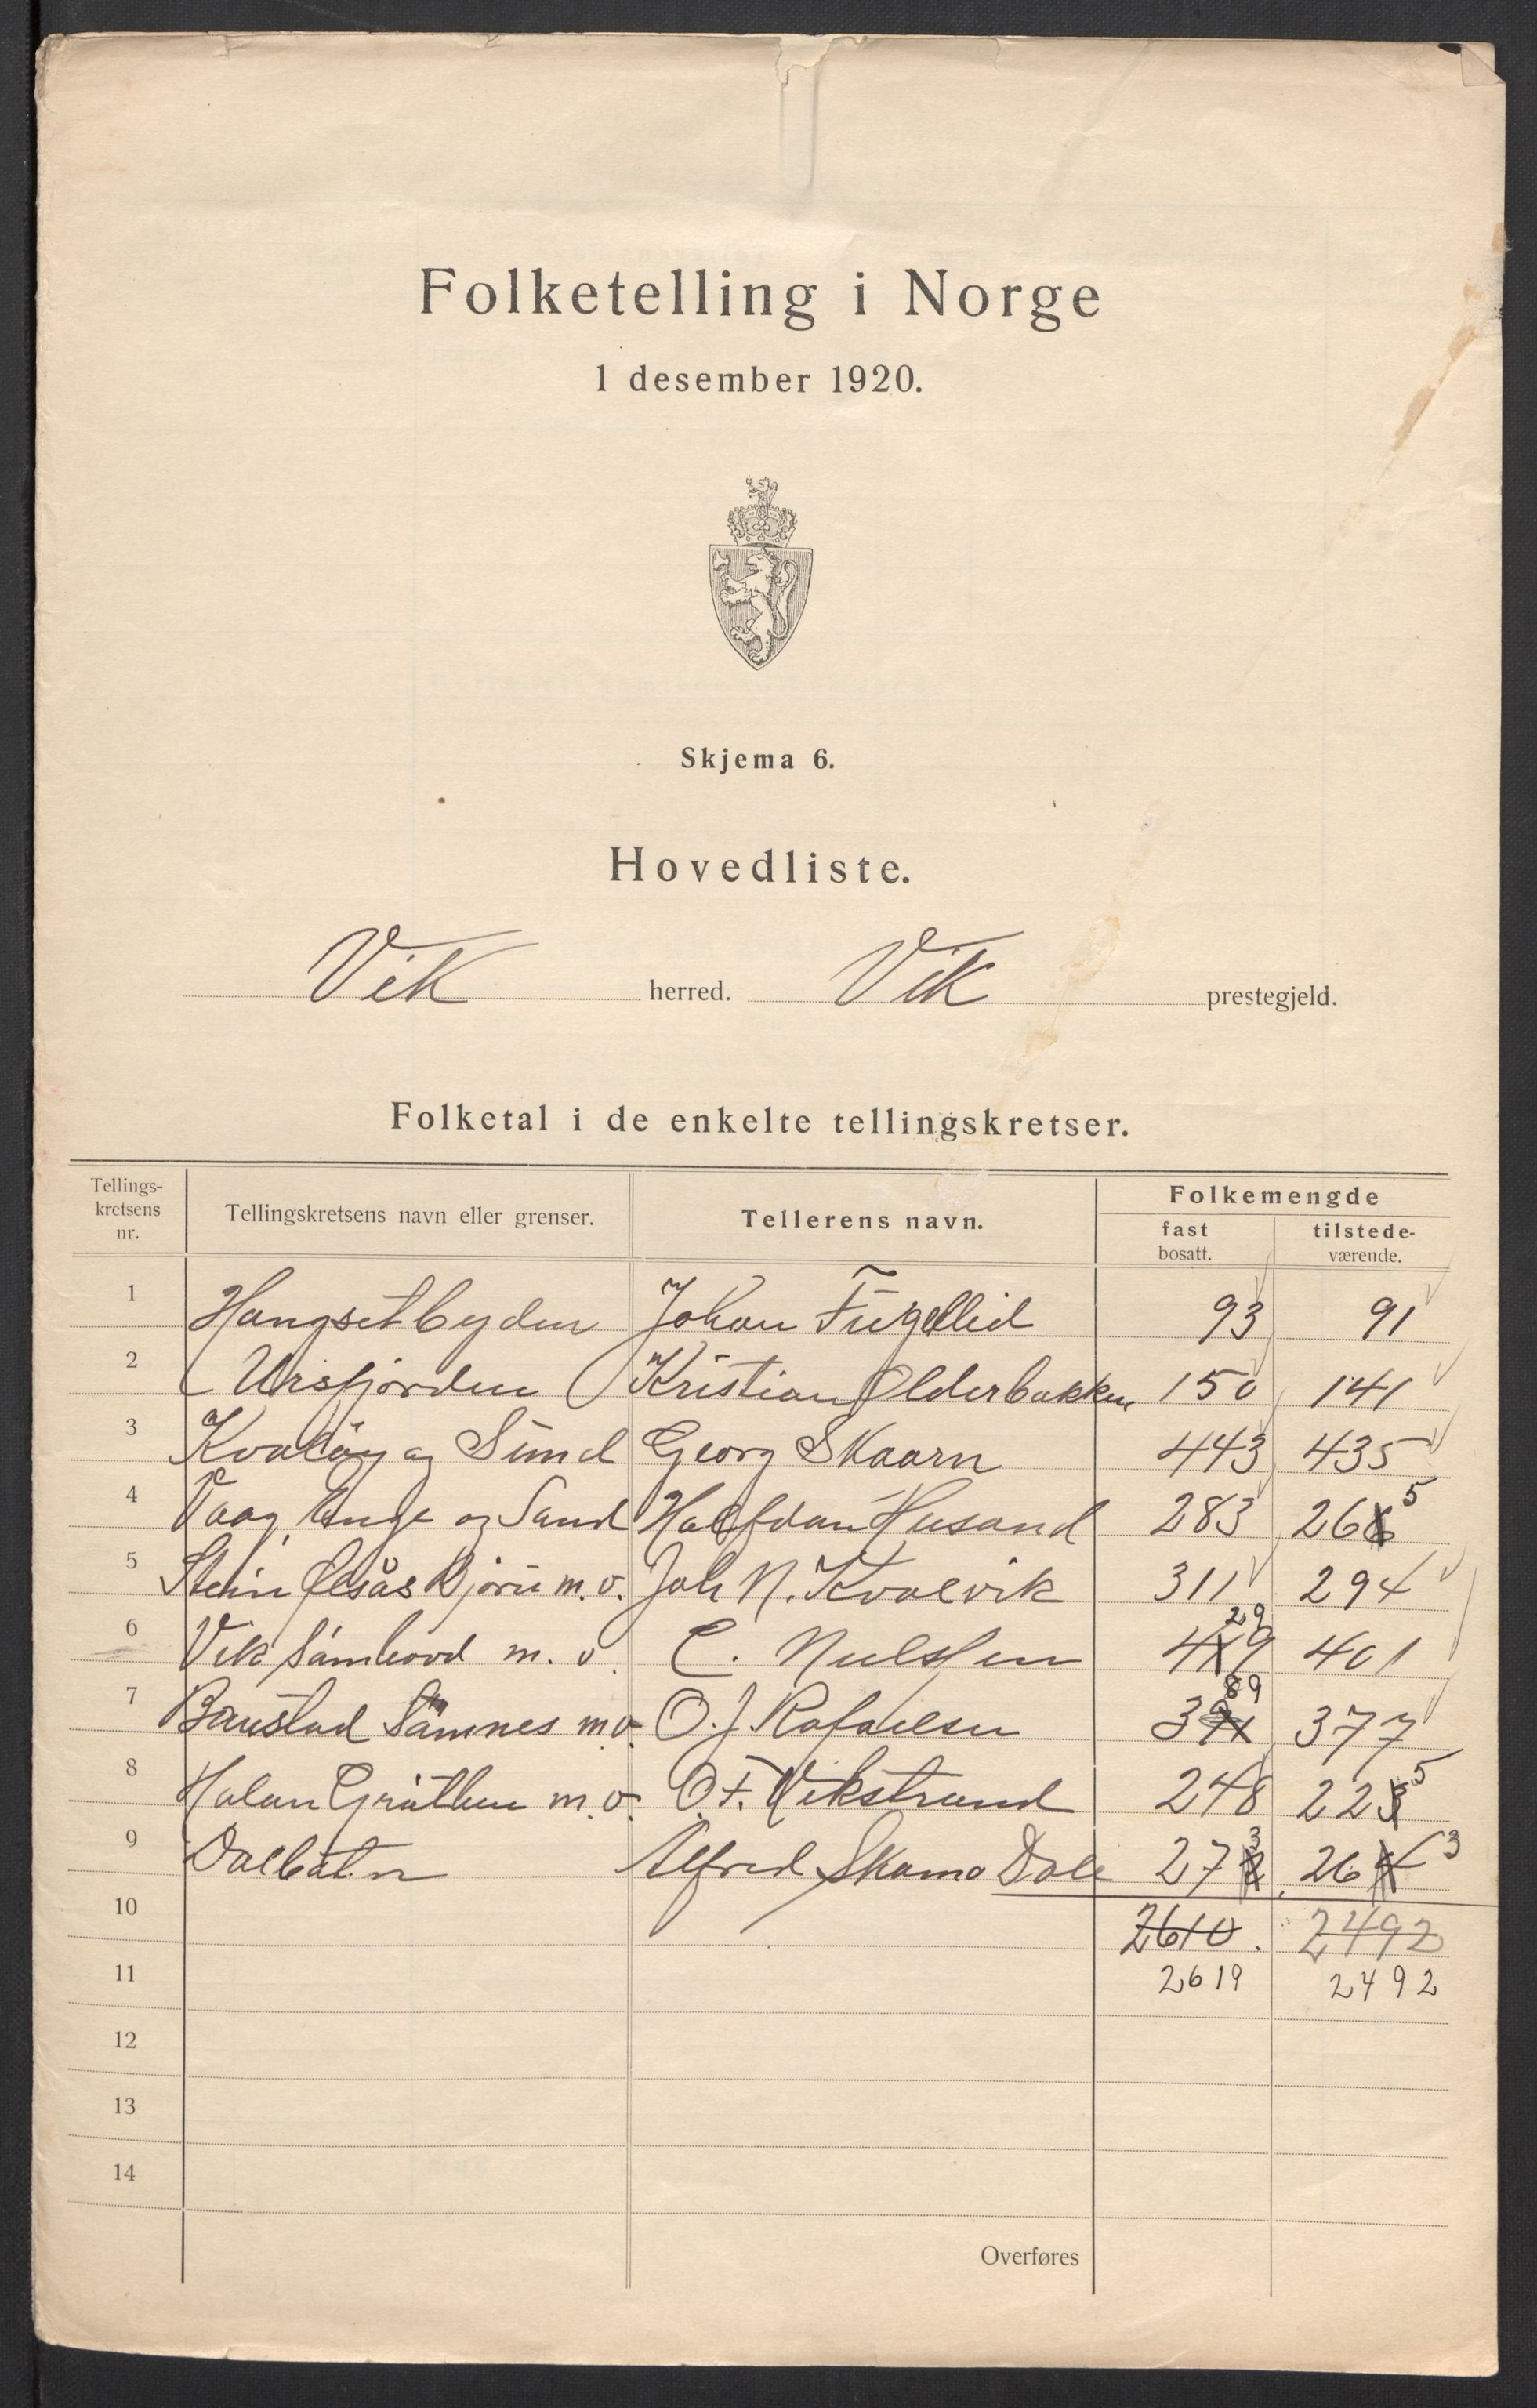 Folketelling i Norge
1 desember 1920.
Skjema 6.
Hovedliste.
Vik herred. Vik prestegjeld.
Folketal i de enkelte tellingskretser.
Tellings-kretsens nr. Tellingskretsens navn eller grenser. Tellerens navn. Folkemengde fast bosatt. tilstede-værende.
1 Hongsetbygden Johan Fugellid 93 91
2 Ursfjorden Kristian Olderbakken 150 141
3 Kvaløy og Sund Georg Skaarn 443 435
4 Vaag, Enge og Sand Halfdan Husand 283 265
5 Stein Olsås Bjøru m.v. Joh N. Kvalvik 311 294
6 Vik Sømhovd m.v. C. 429 401
7 Baustad Sømnes m.v. O.J. Rafaelsen 389 377
8 Halan Gråthen m.v. O.F. Vikstrand 248 225
9 Dalbotn Alfred Skomo Dale 273 263
10 2610. 2492
11 2619 2492
12
13
14
Overføres